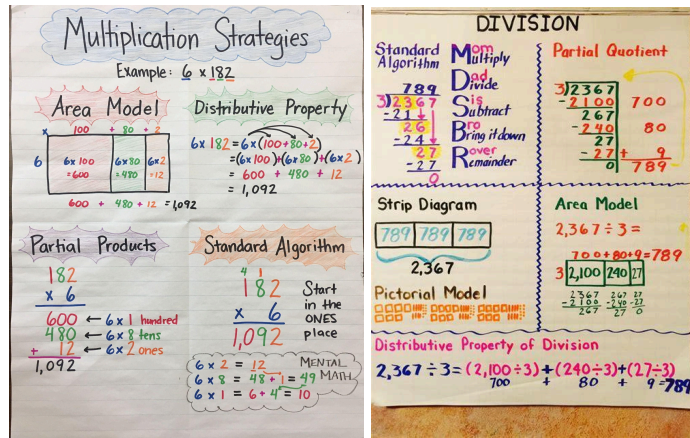 Multiplication Strategies
Example: 6 x 182
Area Model
x 100 + 80 + 2
6 6x100 6x80 6x2
=600 =480 =12
600 + 480 + 12 = 1,092
Distributive Property
6x182 = 6x(100+80+2)
= (6x100)+(6x80)+(6x2)
= 600 + 480 + 12
= 1,092
Partial Products
182
x 6
600 ← 6x1 hundred
480 ← 6x8 tens
+ 12 ← 6x2 ones
1,092
Standard Algorithm
4 1
182
x 6
1,092
Start
in the
ONES
place
6 x 2 = 12
6 x 8 = 48 + 1 = 49
6 x 1 = 6 + 4 = 10
MENTAL
MATH
DIVISION
Standard
Algorithm
789
3)2367
-21
26
-24
27
-27
0
Mom
Multiply
Dad
Divide
Sis
Subtract
Bro
Bring it down
Rover
Remainder
Partial Quotient
3)2367
-2100 700
267
-240 80
27
-27 + 9
0 789
Strip Diagram
789 789 789
2,367
Pictorial Model
Area Model
2,367÷3=
700+80+9=789
3 2,100 240 27
2367 267 27
-2100 -240 -27
267 27 0
Distributive Property of Division
2,367÷3=(2,100÷3)+(240÷3)+(27÷3)
700 + 80 + 9=789